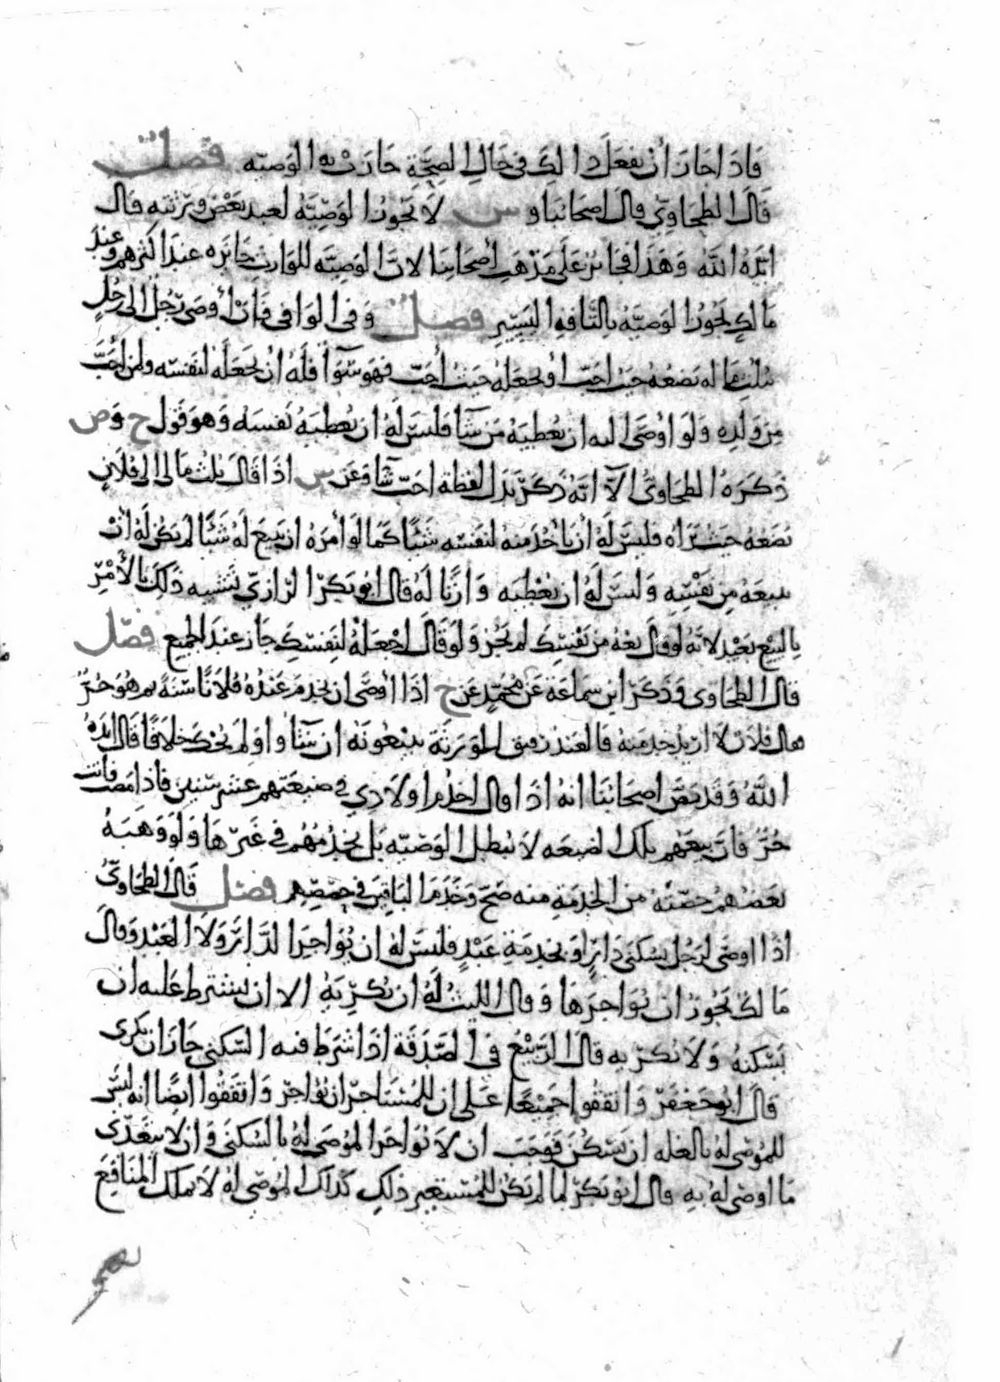 فاذا جاز ان يفعل ذالك في حال الصحة جازت به الوصية فصل
قال الطحاوي قال اصحابنا و س لا تجوز الوصية لعبد بعض ورثته قال
ايده الله وهذا فجائز على مذهب اصحابنا لان الوصية للوارث جائزه عند اكثرهم وعند
مالك تجوز الوصية بالتافه اليسير فصل وفي الوافي فان اوصى رجل الى رجل
بثلث ماله يضعه حيث احب او يجعله حيث احب فهو سوآ فله ان يجعله لنفسه ولمن احب
من ولده ولو اوصى اليه ان يعطيه من شآ فليس له ان يعطيه نفسه وهو قول ح وص
ذكره الطحاوي الا انه ذكر بدل لفظة احب شآ وعن س اذا قال ثلث مالي الى فلان
يضعه حيث يراه فليس له ان ياخذ منه لنفسه شيئا كما لو امره ان يبيع له شيئا لم يكن له ان
يبيعه من نفسه وليس له ان يعطيه وارثا له قال ابو بكر الرازي تشبيه ذلك بالامر
بالبيع بعيد لانه لو قال بعه من نفسك لم يجز ولو قال اجعله لنفسك جاز عند الجميع فصل
قال الطحاوي وذكر ابن سماعة عن محمد عن ح اذا اوصى ان يخدم عبده فلانا سنة ثم هو حر
فقال فلان لا اريد خدمته فالعبد رقيق للورثة يبيعونه ان شآوا ولم يحك خلافا قال ايده
الله وقد نص اصحابنا انه اذا قال اخدم اولادي في ضيعتهم عشر سنين فاذا مضت فانت
حر فان بيعهم تلك الضيعه لا يبطل الوصية بل يخدمهم في غيرها ولو وهبه
بعضهم حصته من الخدمة منه صح وخدم الباقين في حصصهم فصل قال الطحاوي
اذا اوصى لرجل بسكنى دار او بخدمة عبد فليس له ان يؤاجر الدار ولا العبد وقال
مالك تجوز ان يؤاجرها وقال الليث له ان يكريه الا ان يشترط عليه ان
يسكنه ولا يكريه قال الربيع في الصدقة اذا شرط فيه السكنى جاز ان يكرى
قال ابو جعفر واتفقوا جميعا على ان للمستاجر ان يؤاجر واتفقوا ايضا انه ليس
للموصى له بالغلة ان يسكن فوجب ان لا يؤاجر الموصى له بالسكنى وان لا يتعدى
ما اوصى له به قال ابو بكر لما لم يكن للمستعير ذلك كذاك الموصى له لا يملك المنافع